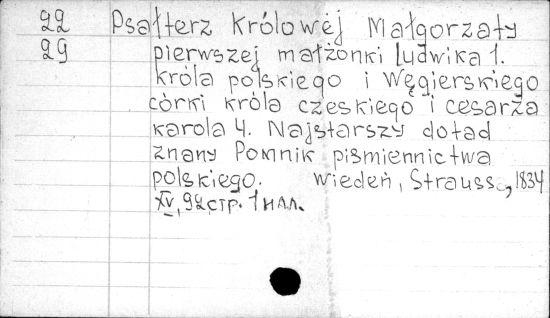 22 Psałterz Królowéj Małgorzaty
29 pierwszej małżonki Ludwika 1.
króla polskiego i Węgierskiego
córki króla czeskiego i cesarza
karola 4. Najstarszy dotąd
znany Pomnik piśmiennictwa
polskiego. Wiedeń, Strauss, 1834
XV, 92 стр. 1 нлл.